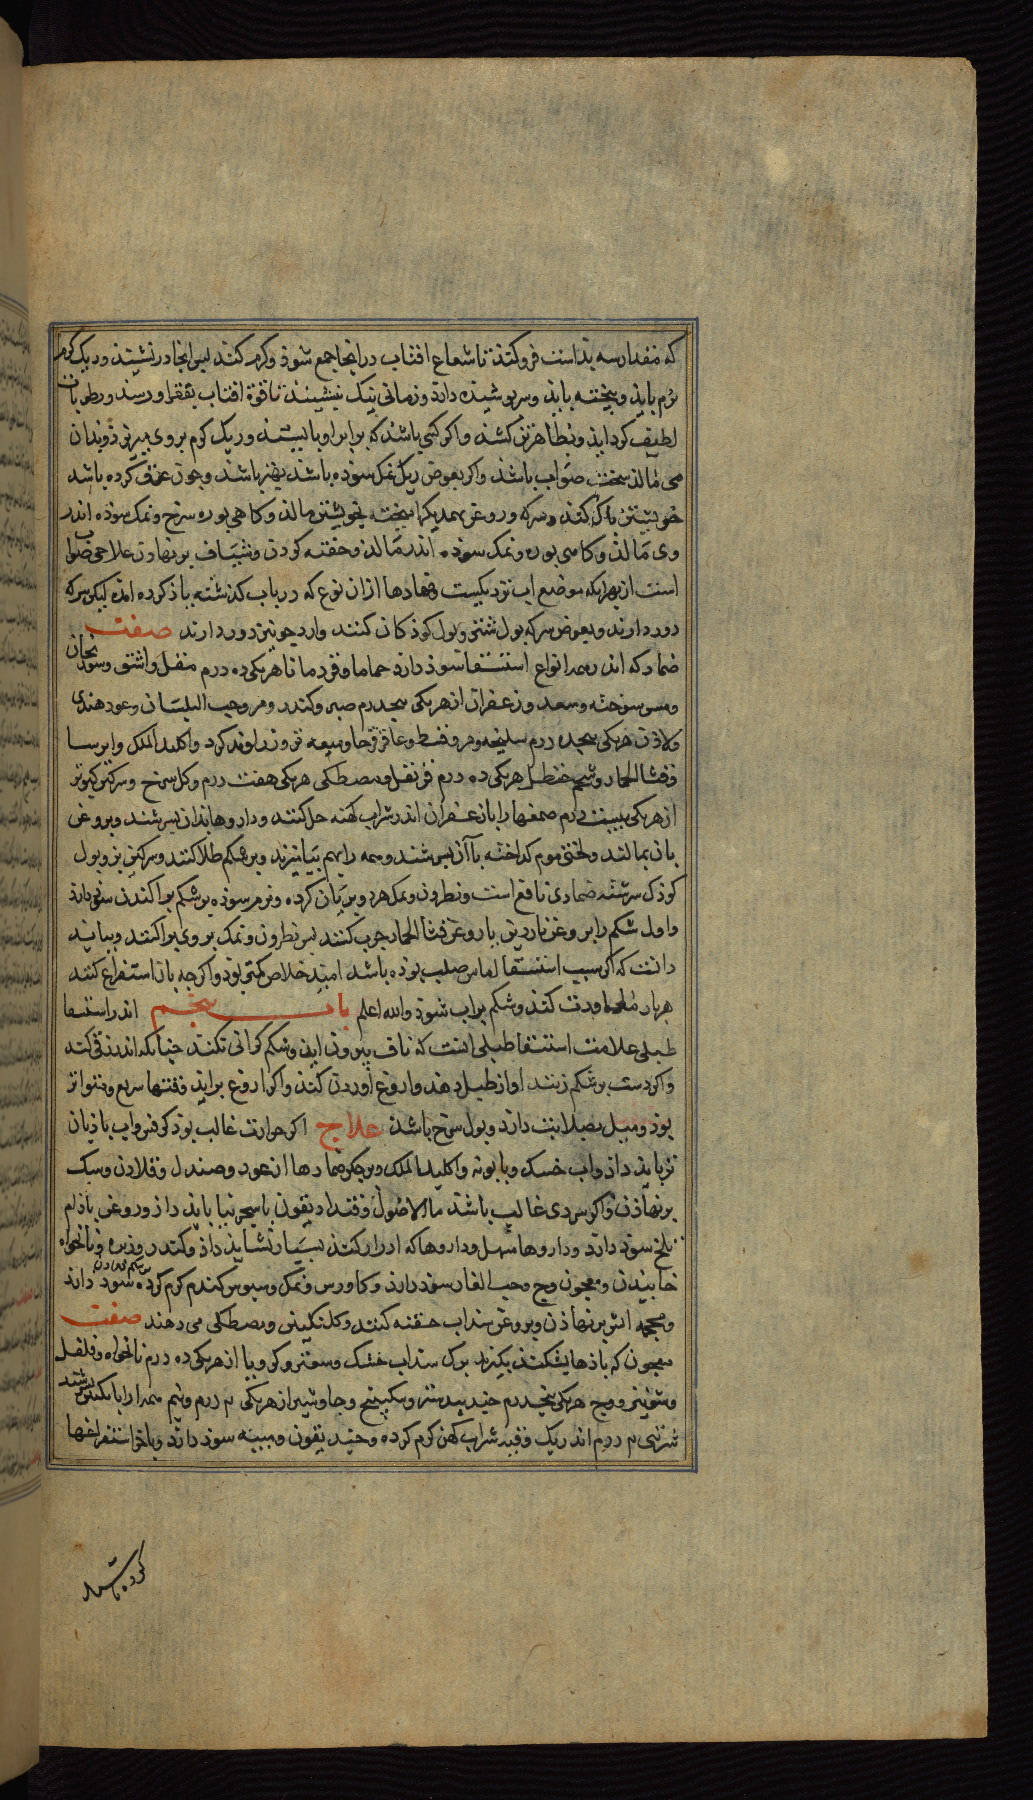 که مقدار سه بدست فرو کنند تا شعاع افتاب در انجا جمع شوذ و کرم کنند پس انجا در نشیند و ریک کرم
نرم باید و بیخته باید و سر پوشیده دارد و زمانی نیک بنشیند تا قوة افتاب بقعر او رسد و رطوبات
لطیف کرداند و بظاهر تن کشد و اکر کسی باشد که برابر او بایستد و ریک کرم بر وی میریزد و بدان
می مالد سخت صواب باشد و اکر بعوض ریک نمک سوده باشد بهتر باشد و چون عرق کرده باشد
خویشتن پاک کند و سرکه و روغن بهمدیکر امیخته بخویشتن مالد و کاهی بوره سرخ و نمک سوده اندر
وی مالد و کاهی بوره و نمک سوده اندر مالد و حقنه کردن و شیاف برنهادن علاجی صواب
است از بهر انکه موضع اب نزدیکست و ضمادها ازان نوع که در باب کذشته یاذ کرده امد لیکن سرکه
دور دارند و بعوض سرکه بول شتر و بول کوذکان کنند و ارد جو نیز دور دارند صفت
ضماد که اندر همه انواع استسقا سوذ دارد حماما و قردمانا هر یکی ده درم مقل و اشق و سورنجان
و مس سوخته و سعد و زعفران از هر یکی پنجدرم صبر و کندر و مر و حب البلسان و عود هندی
و لاذن هر یکی پنجده درم سلیخه و مر و قسط و عاقرقرحا و میعه تر و زراوند کرد و اکلیل الملک و ایرسا
و قثا الحمار و شحم حنظل هر یکی ده درم قرنفل و مصطکی هر یکی هفت درم و کل سرخ و سرکین کبوتر
از هر یکی بیست درم صمغها را با زعفران اندر شراب کهنه حل کنند و داروها بدان بسرشند و بروغن
بان بمالند و لختی موم کداخته با آن بسرشند و همه را بهم بیامیزند و بر شکم طلا کنند و سرکین بز و بول
کوذک سرشته ضمادی نافع است و نطرون و نمک هر دو بریان کرده و نرم سوذه بر شکم پراکندن سوذ دارد
و اول شکم را بروغن ناردین یا روغن قثا الحمار چرب کنند پس نطرون و نمک بر وی پراکنند و بباید
دانست که اکر سبب استسقا اماس صلب بوده باشد امید خلاص کمتر بوذ و اکرچه بار استفراغ کنند
هر بار معاودت کند و شکم پر اب شوذ والله اعلم باب پنجم اندر استسقا
طبلی علامت استسقا طبلی انست که ناف بیرون اید و شکم کرانی نکند چنانکه اندر زقی کند
و اکر دست بر شکم زنند اواز طبل دهد و اروغ اوردن کند و اکر اروغ براید نفسها سریع و متواتر
بوذ و میل بصلابت دارد و بول سرخ باشد علاج اکر حرارت غالب بوذ کرفس و اب باذیان
تر باید داذ و اب خسک و بابونه و اکلیل الملک و بر جکر ضمادها از عود و صندل و قلاذن و سک
برنهاذن و اکر سردی غالب باشد ما الاصول و قنداد یقون یا سجرینا باید داذ و روغن باذام
تلخ سوذ دارد و داروها مسهل و داروها که ادرار کنند بسیار نشاید داذ و کندر و زیره و نانخواه
خاییدن و معجون وج و حب الغار سوذ دارد و کاورس و نمک و سبوس کندم کرم کرده بر شکم نهادن سود دارد
و محجمه اتش برنهاذن و بروغن سذاب حقنه کنند و کلنکبین و مصطکی می دهند صفت
معجون که باذها بشکند بکیرند برک سذاب خشک و سعتر و کرویا از هر یکی ده درم نانخواه و فلفل
و شونیز و وج هر یکی پنجدرم جند بیدستر و سکبینج و جاوشیر از هر یکی ۲ درم و نیم همه را با انکبین بسرشند
شربتی ۲ درم اندر یک وقیه شراب کهن کرم کرده و جند یقون و میبه سوذ دارد و باخر استفراغها
کرده باشد